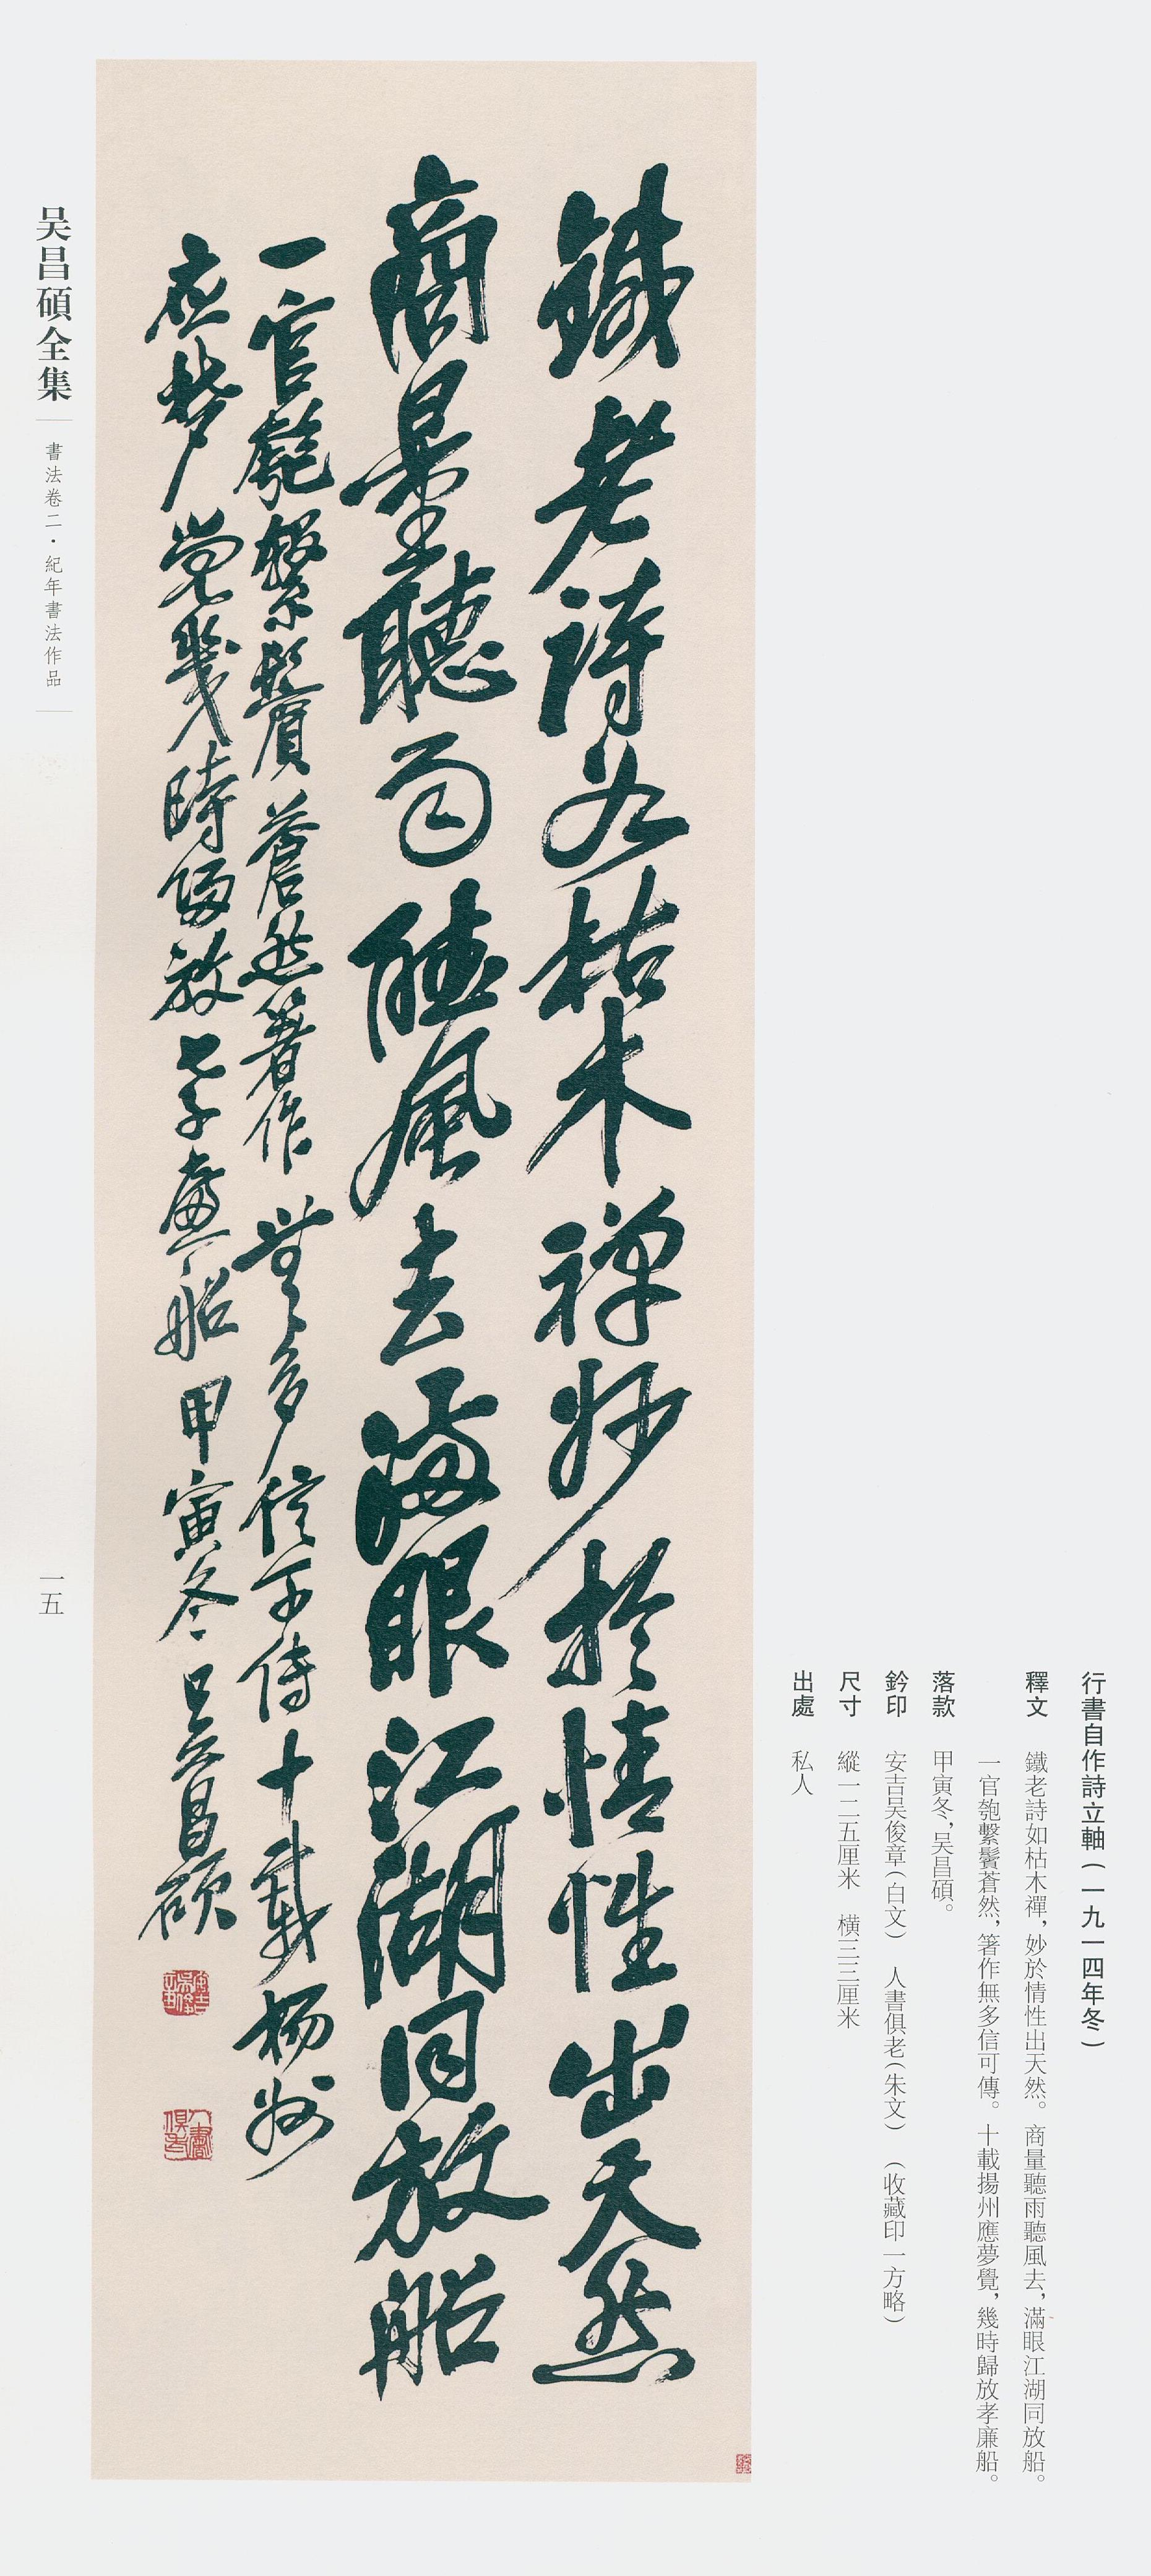 行書自作詩立軸（一九一四年冬）
釋文　鐵老詩如枯木禪，妙於情性出天然。商量聽雨聽風去，滿眼江湖同放船。
一官匏繫鬢蒼然，箸作無多信可傳。十載揚州應夢覺，幾時歸放孝廉船。
落款　甲寅冬，吴昌碩。
鈐印　安吉吴俊章（白文）　人書俱老（朱文）　（收藏印一方略）
尺寸　縱一二五厘米　橫三三厘米
出處　私人
鐵老詩如枯木禪妙於情性出天然
商量聽雨聽風去滿眼江湖同放船
一官匏繫鬢蒼然箸作無多信可傳十載揚州
應夢覺幾時歸放孝廉船甲寅冬吴昌碩
安吉吴俊章
人書俱老
吴昌碩全集
書法卷二·紀年書法作品
一五